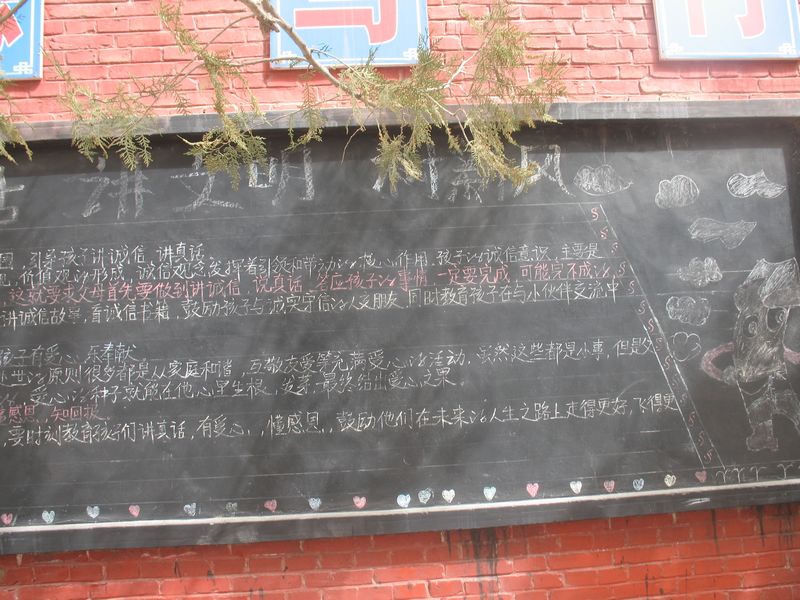 讲文明 树新风
引导孩子讲诚信、讲真话
价值观的形成, 诚信观念发挥着引领和带动的核心作用, 孩子的诚信意识, 主要是
这就要求父母首先要做到讲诚信, 说真话, 答应孩子的事情一定要完成, 可能完不成的,
讲诚信故事, 看诚信书籍, 鼓励孩子与诚实守信的人交朋友, 同时教育孩子在与小伙伴交流中
孩子有爱心, 乐奉献
处世的原则很多都是从家庭和谐, 互敬友爱等充满爱心的活动, 虽然这些都是小事, 但是父
爱心的种子就能在他心里生根, 发芽, 最终结出爱心之果。
感恩, 知回报
要时刻教育孩子们讲真话, 有爱心, 懂感恩, 鼓励他们在未来的人生之路上走得更好, 飞得更